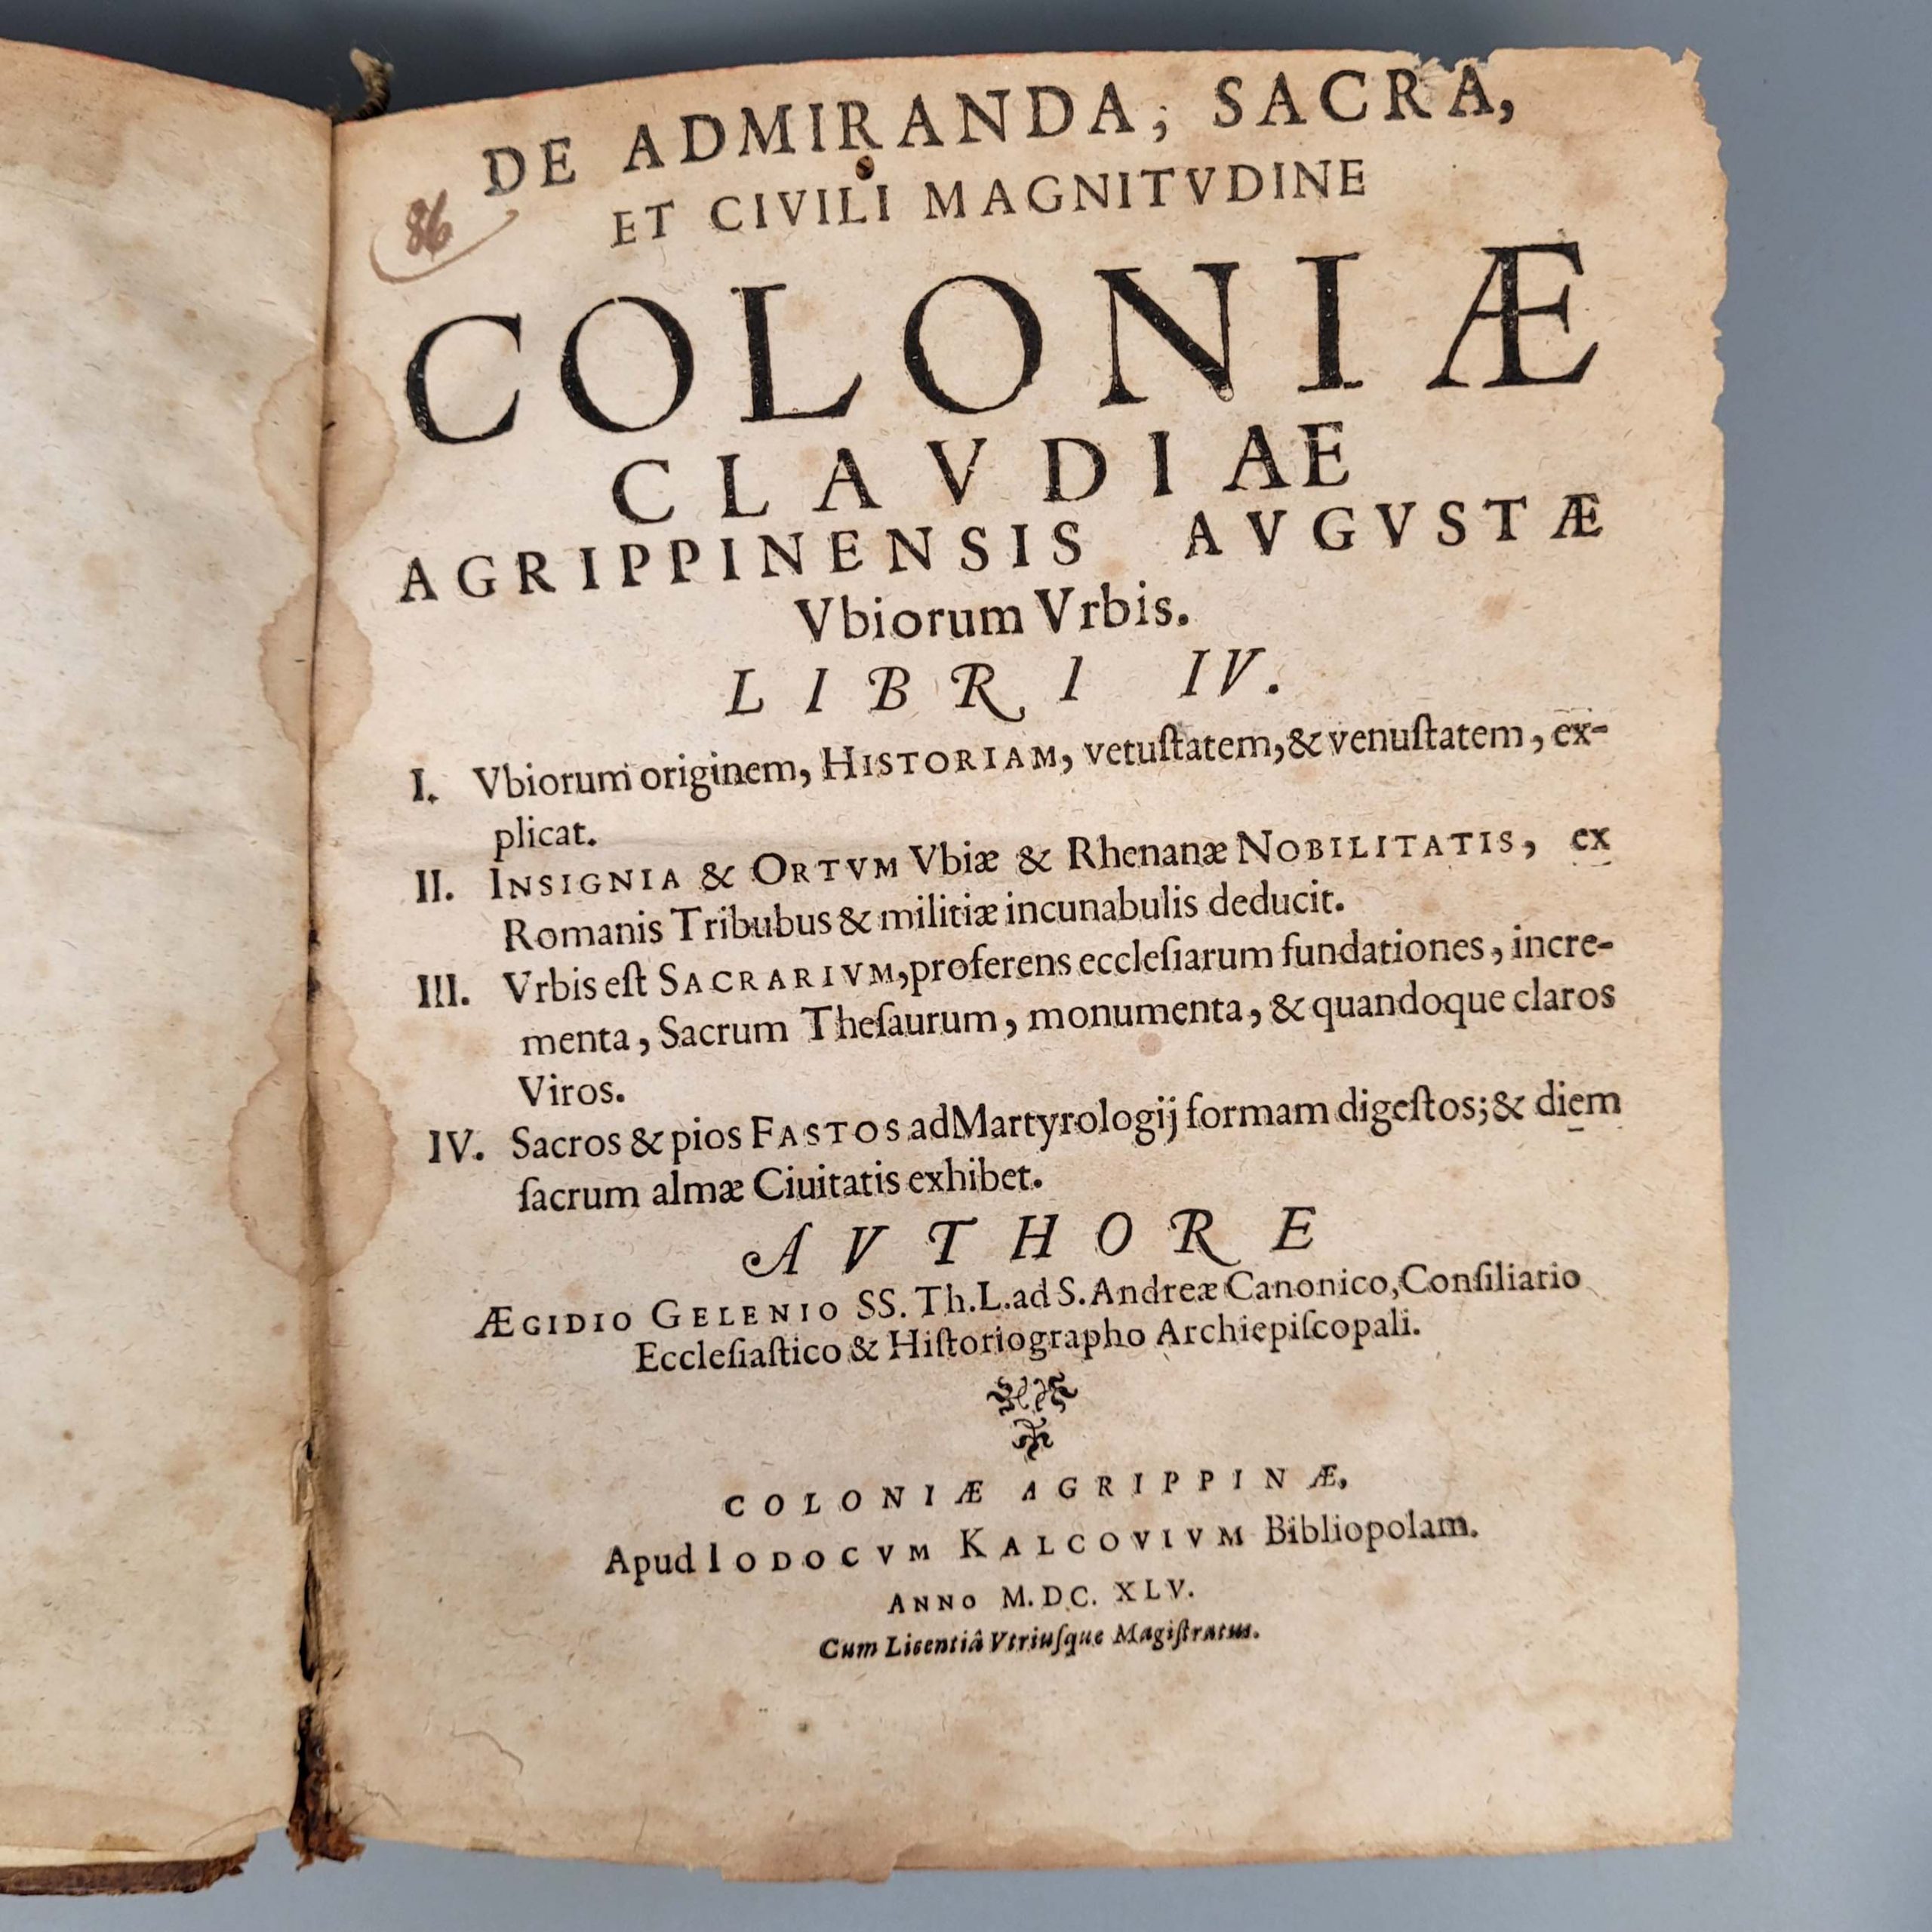 DE ADMIRANDA, SACRA,
ET CIVILI MAGNITVDINE
86
COLONIÆ
CLAVDIAE
AGRIPPINENSIS AVGVSTÆ
Vbiorum Vrbis.
LIBRI IV.
I. Vbiorum originem, HISTORIAM, vetuſtatem, & venuſtatem, ex-
plicat.
II. INSIGNIA & ORTVM Vbiæ & Rhenanæ NOBILITATIS, ex
Romanis Tribubus & militiæ incunabulis deducit.
III. Vrbis eſt SACRARIVM, proferens eccleſiarum fundationes, incre-
menta, Sacrum Theſaurum, monumenta, & quandoque claros
Viros.
IV. Sacros & pios FASTOS ad Martyrologij formam digeſtos; & diem
ſacrum almæ Ciuitatis exhibet.
AVTHORE
ÆGIDIO GELENIO SS. Th. L. ad S. Andreæ Canonico, Conſiliario
Eccleſiaſtico & Hiſtoriographo Archiepiſcopali.
COLONIÆ AGRIPPINÆ,
Apud IODOCVM KALCOVIVM Bibliopolam.
ANNO M. DC. XLV.
Cum Licentiâ Vtriuſque Magiſtratus.